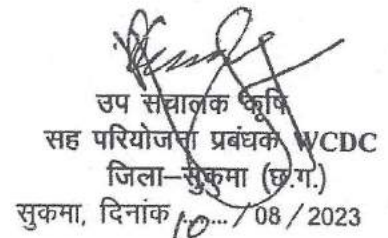 उप संचालक कृषि
सह परियोजना प्रबंधक WCDC
जिला–सुकमा (छ.ग.)
सुकमा, दिनांक 10 / 08 / 2023